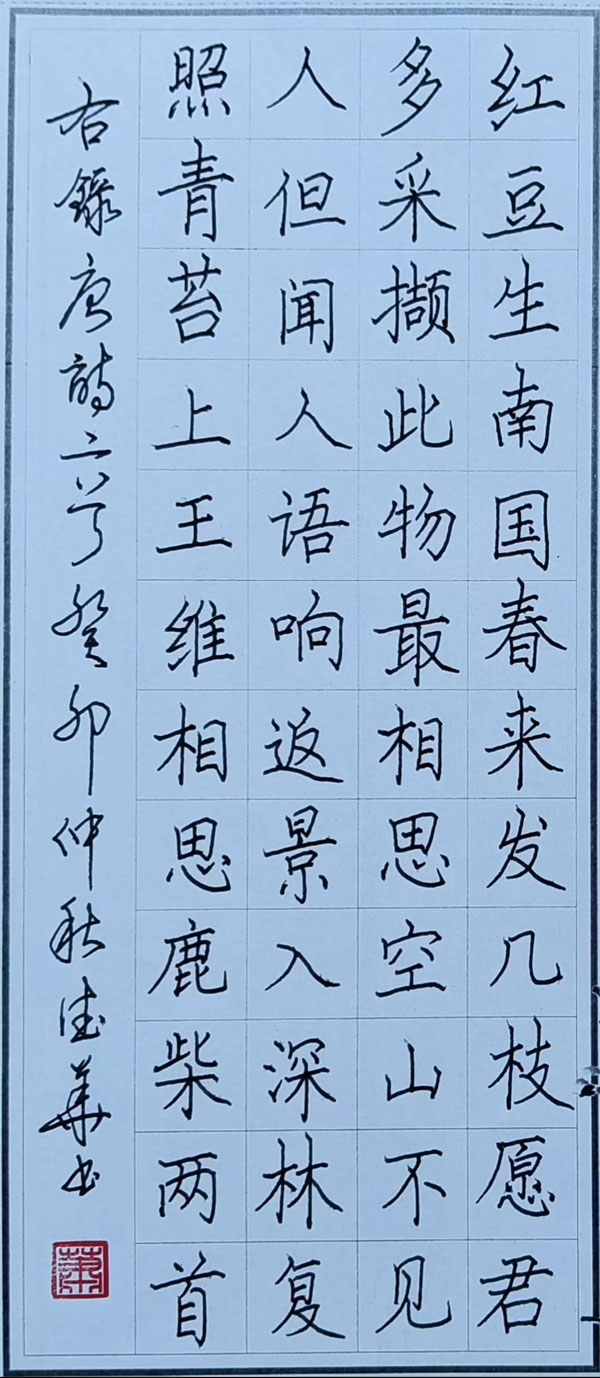 红豆生南国春来发几枝愿君
多采撷此物最相思空山不见
人但闻人语响返景入深林复
照青苔上王维相思鹿柴两首
右録唐詩二首癸卯仲秋德華书